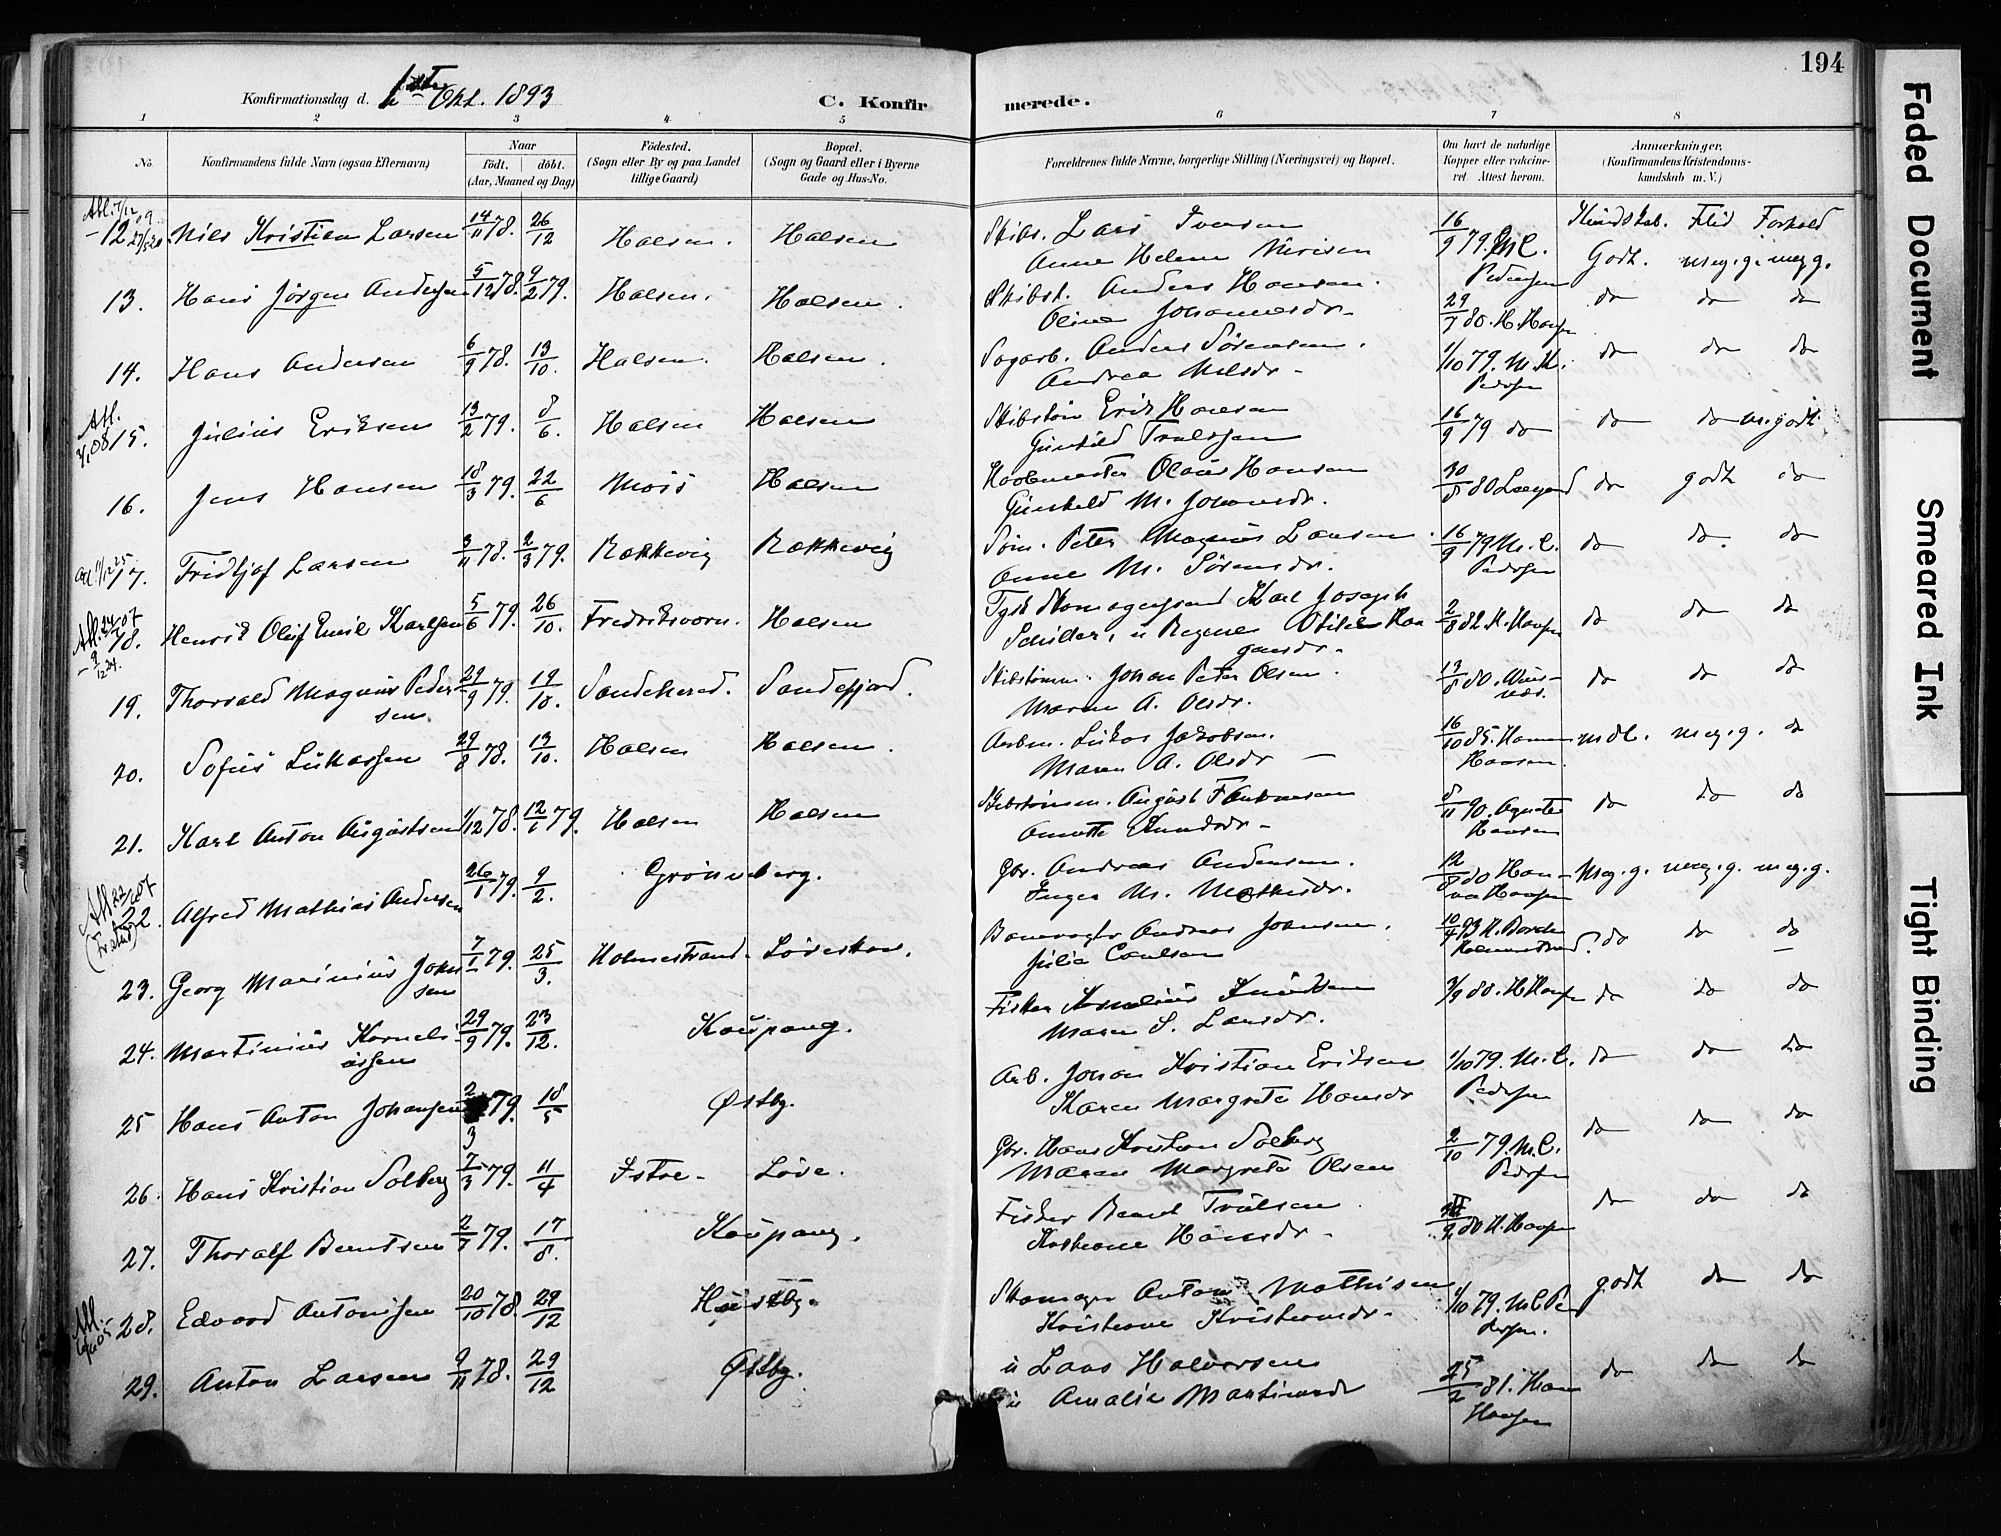 194
Konfirmationsdag d. 1ste Okt. 1893
C. Konfirmerede.
1 2 3 4 5 6 7 8
No. Konfirmandens fulde Navn (ogsaa Efternavn) Naar født. døbt. (Aar, Maaned og Dag) Fødested. (Sogn eller By og paa Landet tillige Gaard) Bopæl. (Sogn og Gaard eller i Byerne Gade og Hus-No. Forældrenes fulde Navne, borgerlige Stilling (Næringsvei) og Bopæl. Om havt de naturlige Kopper eller vakcineret. Attest herom. Anmærkninger. (Konfirmandens Kristendomskundskab m. V.)
Kundskab. Flid Forhold
12. Nils Kristian Larsen 14/11 78. 26/12 Halsen. Halsen Skibs. Lars Iversen 16/9 79. M.C. Pedersen Godt. meg.g. meg.g.
Anne Helene
13. Hans Jörgen Andersen 5/12 78. 9/2 79. Halsen. Halsen. Skibst. Anders Hansen. 29/7 80. H. Hansen do do do
Oline Johannesdr.
14. Hans Andersen 6/9 78. 13/10. Halsen. Halsen. Sagarb. Anders Sörensen. 1/10 79. Pedersen do do do
Andrea Nilsdr.
Att. 08 15. Julius Eriksen 13/2 79. 8/6. Halsen Halsen Skibstöm Erik Hansen 16/9 79 do do do m. godt.
Gunhild Trulssen
16. Jens Hansen 18/3 79. 22/6 Moss Halsen Olaus Hansen 30/8 80 do godt do
Gunhild M. Johansdr.
17. Fridtjof Larsen 3/11 78. 2/3 79. Rækkevig Rækkevig Söm. Peter Magnus Larsen. 16/9 79 M.C. Pedersen do do. do
Anne M. Sörensdr.
18. Henrik Oluf Emil Karlsen 5/6 79. 26/10. Fredriksværn. Halsen Tysk Skomagersvend Karl Joseph 2/8 82. H. Hansen do do do
Schiller, u Regine Otilie
19. Thorvald Magnus Pedersen 29/9 79. 19/10. Sandeherred. Sandefjord. Skibstömm. Johan Peter Olsen. 13/8 80. do do do
Maren A. Olsdr.
20. Sofus Lukassen 29/8 78. 13/10. Halsen Halsen. Arbm. Lukas Jakobsen. 16/10 85. Hansen. mdl. meg.g. do
Maren A. Olsdr
21. Karl Anton Augustsen 1/12 78. 12/1 79. Halsen Halsen Skibstömm. August 8/11 90. Agnete Hansen do do do
Anette Knudsdr.
Att 22. Alfred Mathias Andersen 26/1 79. 9/2. Grönneberg. Gbr. Andreas Andersen. 12/8 80 Hanna Hansen Meg.g. meg.g. meg.g.
Inger M. Mathisdr.
23. Georg Marinius Johnsen 7/1 79. 25/3. Holmestrand. Löveskov. Andreas Johnsen. 10/4 93 Holmestrand. do do do
Julia Carlsen
24. Martinius Korneliussen 29/9 79. 23/12. Kaupang. Fisker Kornelius Knudsen 3/9 80. H Hansen do do do
Maren S. Larsdr.
25 Hans Anton Johansen 2/3 79. 18/5 Östby. Arb. Johan Kristian Eriksen 1/10 79. M.C. Pedersen do do do
Karen Margrete Hansdr
26. Hans Kristian Solberg 7/3 79. 11/4 Istre. Löve. Gbr. Hans Kristian Solberg 2/10 79. M.C. Pedersen do do do
Maren Margrete Olsen
27. Thoralf Berntsen 2/7 79. 17/8. Kaupang. Fisker Bernt Trulsen 80 H. Hansen do do do
Hansdr.
Att. 28. Edvard Antonisen 20/10 78. 29/12 Huseby. Skomager Anton Mathisen 1/10 79. M C Pedersen. godt do do
Kristiansdr.
29. Anton Larsen 9/11 78. 29/12 Östby. u Lars Halvorsen 25/2 81. Hansen do do do
u Amalie Martinsdr
Faded Document
Smeared Ink
Tight Binding